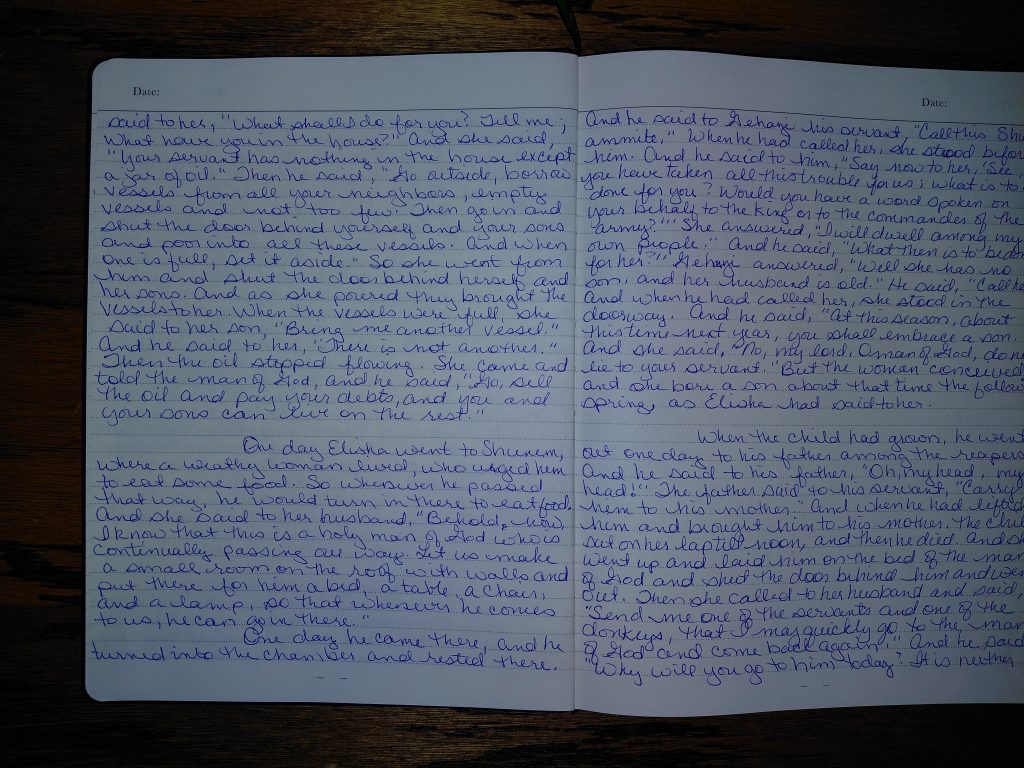 Date:
said to her, "What shall I do for you? Tell me;
What have you in the house?" And she said,
"Your servant has nothing in the house except
a jar of oil." Then he said, "Go outside, borrow
vessels from all your neighbors, empty
vessels and not too few. Then go in and
shut the door behind yourself and your sons
and poor into all these vessels. And when
one is full, set it aside." So she went from
him and shut the door behind herself and
her sons. And as she poured they brought the
vessels to her. When the vessels were full, she
said to her son, "Bring me another vessel."
And he said to her, "There is not another."
Then the oil stopped flowing. She came and
told the man of God, and he said, "Go, sell
the oil and pay your debts, and you and
your sons can live on the rest."
One day Elisha went to Shunem,
where a wealthy woman lived, who urged him
to eat some food. So whenever he passed
that way, he would turn in there to eat food.
And she said to her husband, "Behold, now,
I know that this is a holy man of God who is
continually passing our way. Let us make
a small room on the roof with walls and
put there for him a bed, a table, a chair,
and a lamp, so that whenever he comes
to us, he can go in there."
One day he came there, and he
turned into the chamber and rested there.
Date:
And he said to Gehazi his servant "Call this Shu
ammite." When he had called her, she stood before
him. And he said to him, "Say now to her, 'See,
you have taken all this trouble for us; what is to
done for you? Would you have a word spoken on
your behalf to the King or to the commander of the
army?'" She answered, "I will dwell among my
own people." And he said, "What then is to be don
for her?" Gehazi answered, "Well she has no
son, and her husband is old." He said, "Call he
And when he had called her, she stood in the
doorway. And he said, "At this season, about
this time next year, you shall embrace a son.
And she said, "No, my lord, O man of God, do no
lie to your servant." But the woman conceived
and she bore a son about that time the follow
spring, as Elisha had said to her.
When the child had grown, he went
out one day to his father among the reapers
And he said to his father, "Oh, my head, my
head!" The father said to his servant, "Carry
him to his mother." And when he had lifted
him and brought him to his mother, the child
sat on her lap till noon, and then he died. And sh
went up and laid him on the bed of the man
of God and shut the door behind him and wen
out. Then she called to her husband and said,
"Send me one of the servants and one of the
donkeys, that I may quickly go to the man
of God and come back again." And he said
"Why will you go to him today? It is neither